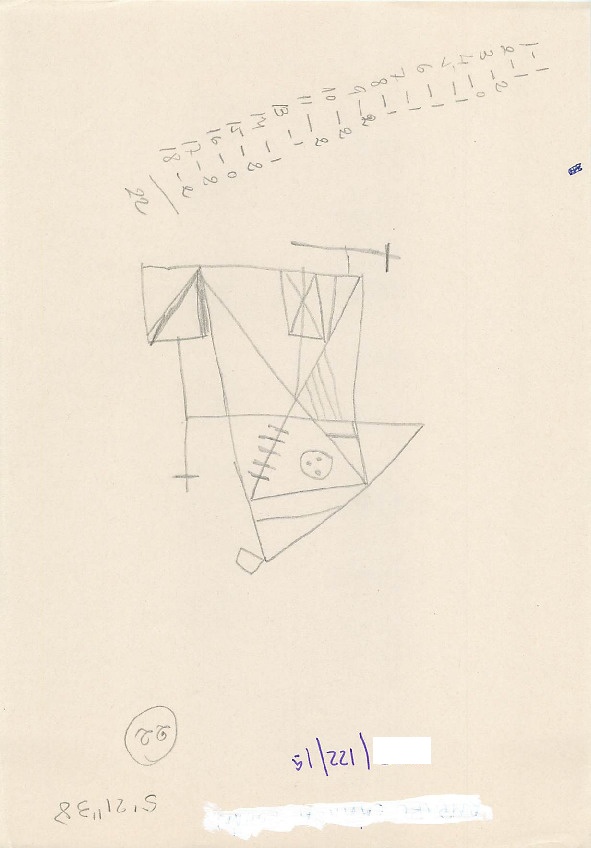 1 - 1
2 - 1
3 - 2
4 - 0
5 - 1
6 - 1
7 - 1
8 - 1
9 - 2
10 - 2
11 - 2
13 - 1
14 - 1
15 - 2
16 - 0
17 - 2
18 - 2
22
22
/122/15
5'21"38